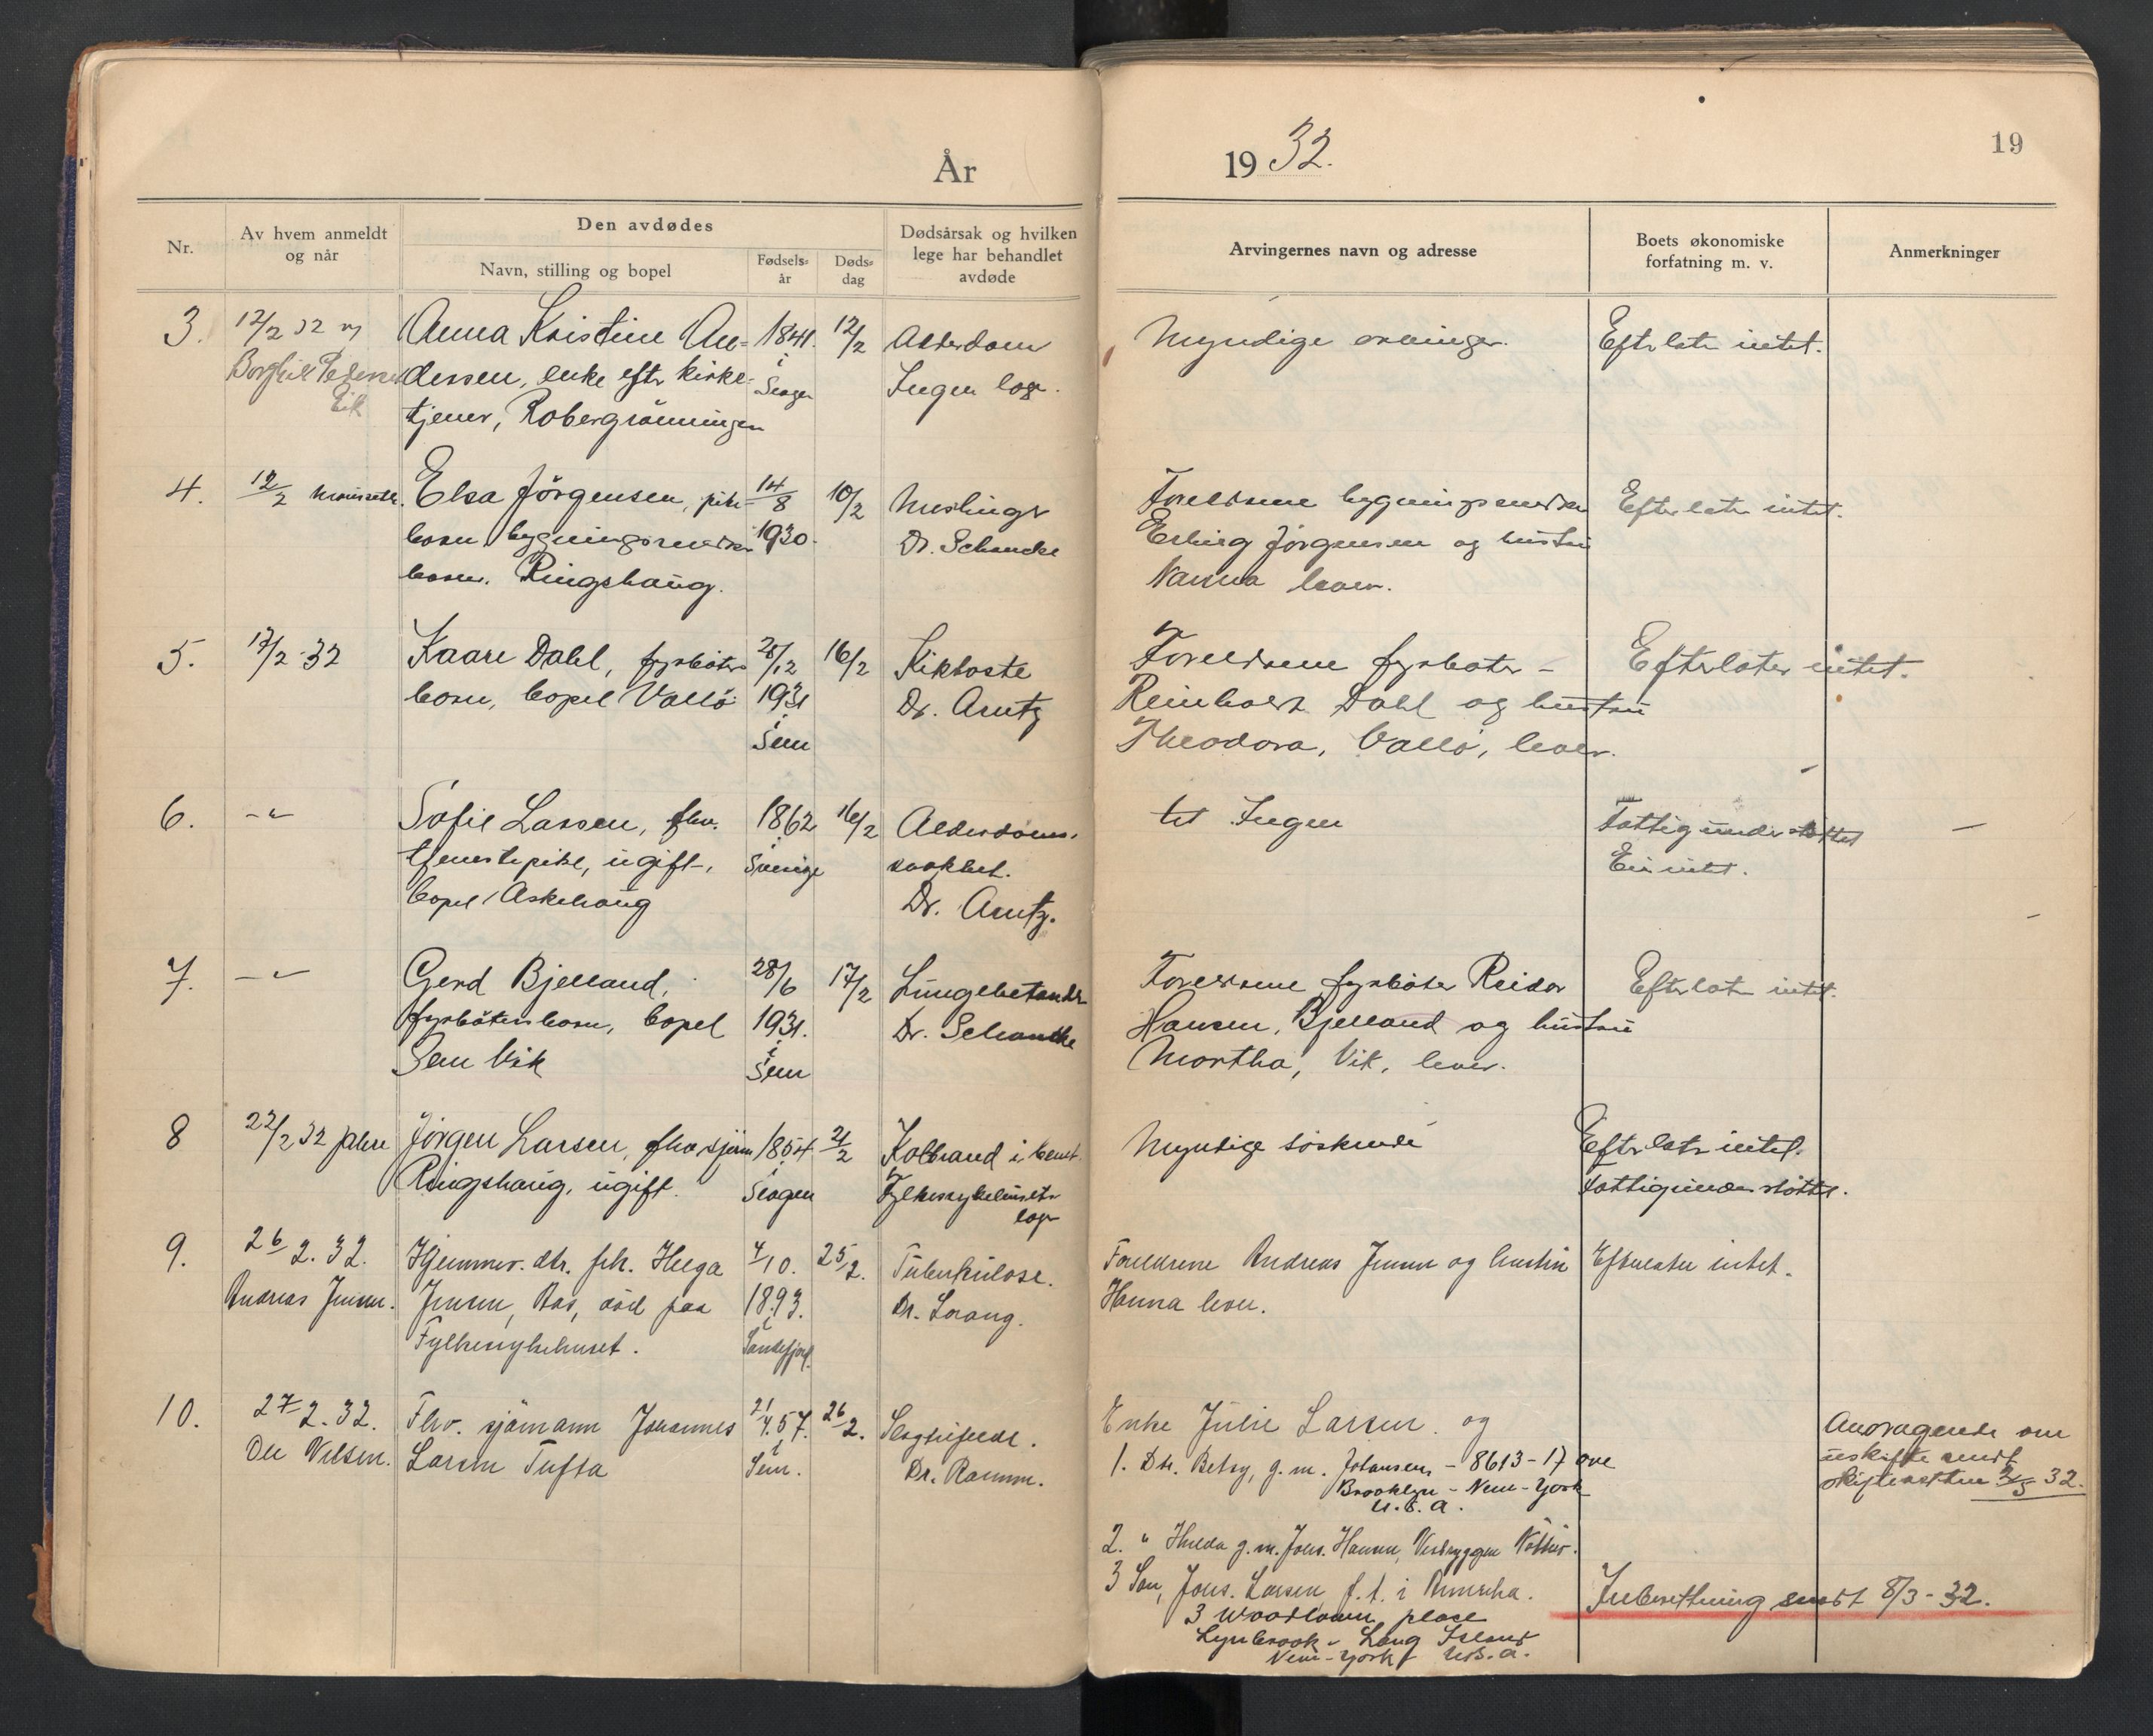 År
19 32.
19
Nr.
Av hvem anmeldt
og når
Den avdødes
Navn, stilling og bopel
Fødsels-
år
Døds-
dag
Dødsårsak og hvilken
lege har behandlet
avdøde
Arvingernes navn og adresse
Boets økonomiske
forfatning m. v.
Anmerkninger
3.
12/2 32 av
Borghild Pedersen
Eik
Anna Kristine An-
dersen, enke eftr kirke-
tjener, Robergrönningen
1841.
i
Slagen
12/2
Alderdom
Ingen læge.
Myndige arvinger.
Efterlater intet.
4.
12/2
Elsa Jörgensen, pike-
barn, bygningssnekker
barn. Ringshaug.
14/8
1930.
10/2
Meslinger
Dr. Schancke
Foreldrene bygningssnekker
Erling Jörgensen og hustru
Nanna lever.
Efterlater intet.
5.
17/2-32
Kaare Dahl, fyrböter-
barn, bopel Vallö
28/12
1931
i
Sem
16/2
Kikhoste
Dr. Arntz
Foreldrene fyrböter -
Reinholdt Dahl og hustru
Theodora, Vallö, lever.
Efterlater intet.
6.
-"-
Sofie Larsen, fhv.
tjenestepike, ugift,
bopel Askehaug
1862
i
Sverige
16/2
Alderdoms-
svakhet.
Dr. Arntz.
Ingen
Fattigunderstöttet
Eier intet.
7.
-"-
Gerd Bjelland,
fyrböterbarn, bopel
Sem Vik
28/6
1931.
i
Sem
17/2
Lungebetendelse
Dr. Schancke
Foreldrene fyrböter Reidar
Hansen, Bjelland og hustru
Martha, Vik, lever.
Efterlater intet.
8
22/2 32
Jörgen Larsen, fhv sjöm
Ringshaug, ugift.
1854
i
Slagen
21/2
Kolbrand i benet.
Fylkessykehusets
læge
Myndige söskende
Efterlater intet.
Fattigunderstöttet.
9.
26/2. 32.
Andreas Jensen.
Hjemmev. dtr. frk. Helga
Jensen, Aas, död paa
Fylkessykehuset.
4/10.
1893.
i
Sandefjord
25/2.
Tuberkulose.
Dr. Lorang.
Foreldrene Andreas Jensen og hustru
Hanna lever.
Efterlater intet.
10.
27/2. 32.
Ole Nilsen.
Fhv. sjömann Johannes
Larsen Tufta
21/4. 57.
i
Sem.
26/2.
Slagtilfelde.
Dr. Ramm.
Enke Julie Larsen og
1. Dtr. Betsy, g. m. Johansen, - 8613-17 ave
Brooklyn - New-York
U.S.A.
2. " Hulda g. m. Johs. Hansen, Vestbryggen Nötterö.
3 Sön, Johs. Larsen, f. t. i Amerika.
3 Woodlawn place
Lynbrook - Long Island
New-York U.S.A.
Andragende om
uskifte sendt
skifteretten 3/3 32.
Inberetning sendt 8/3-32.